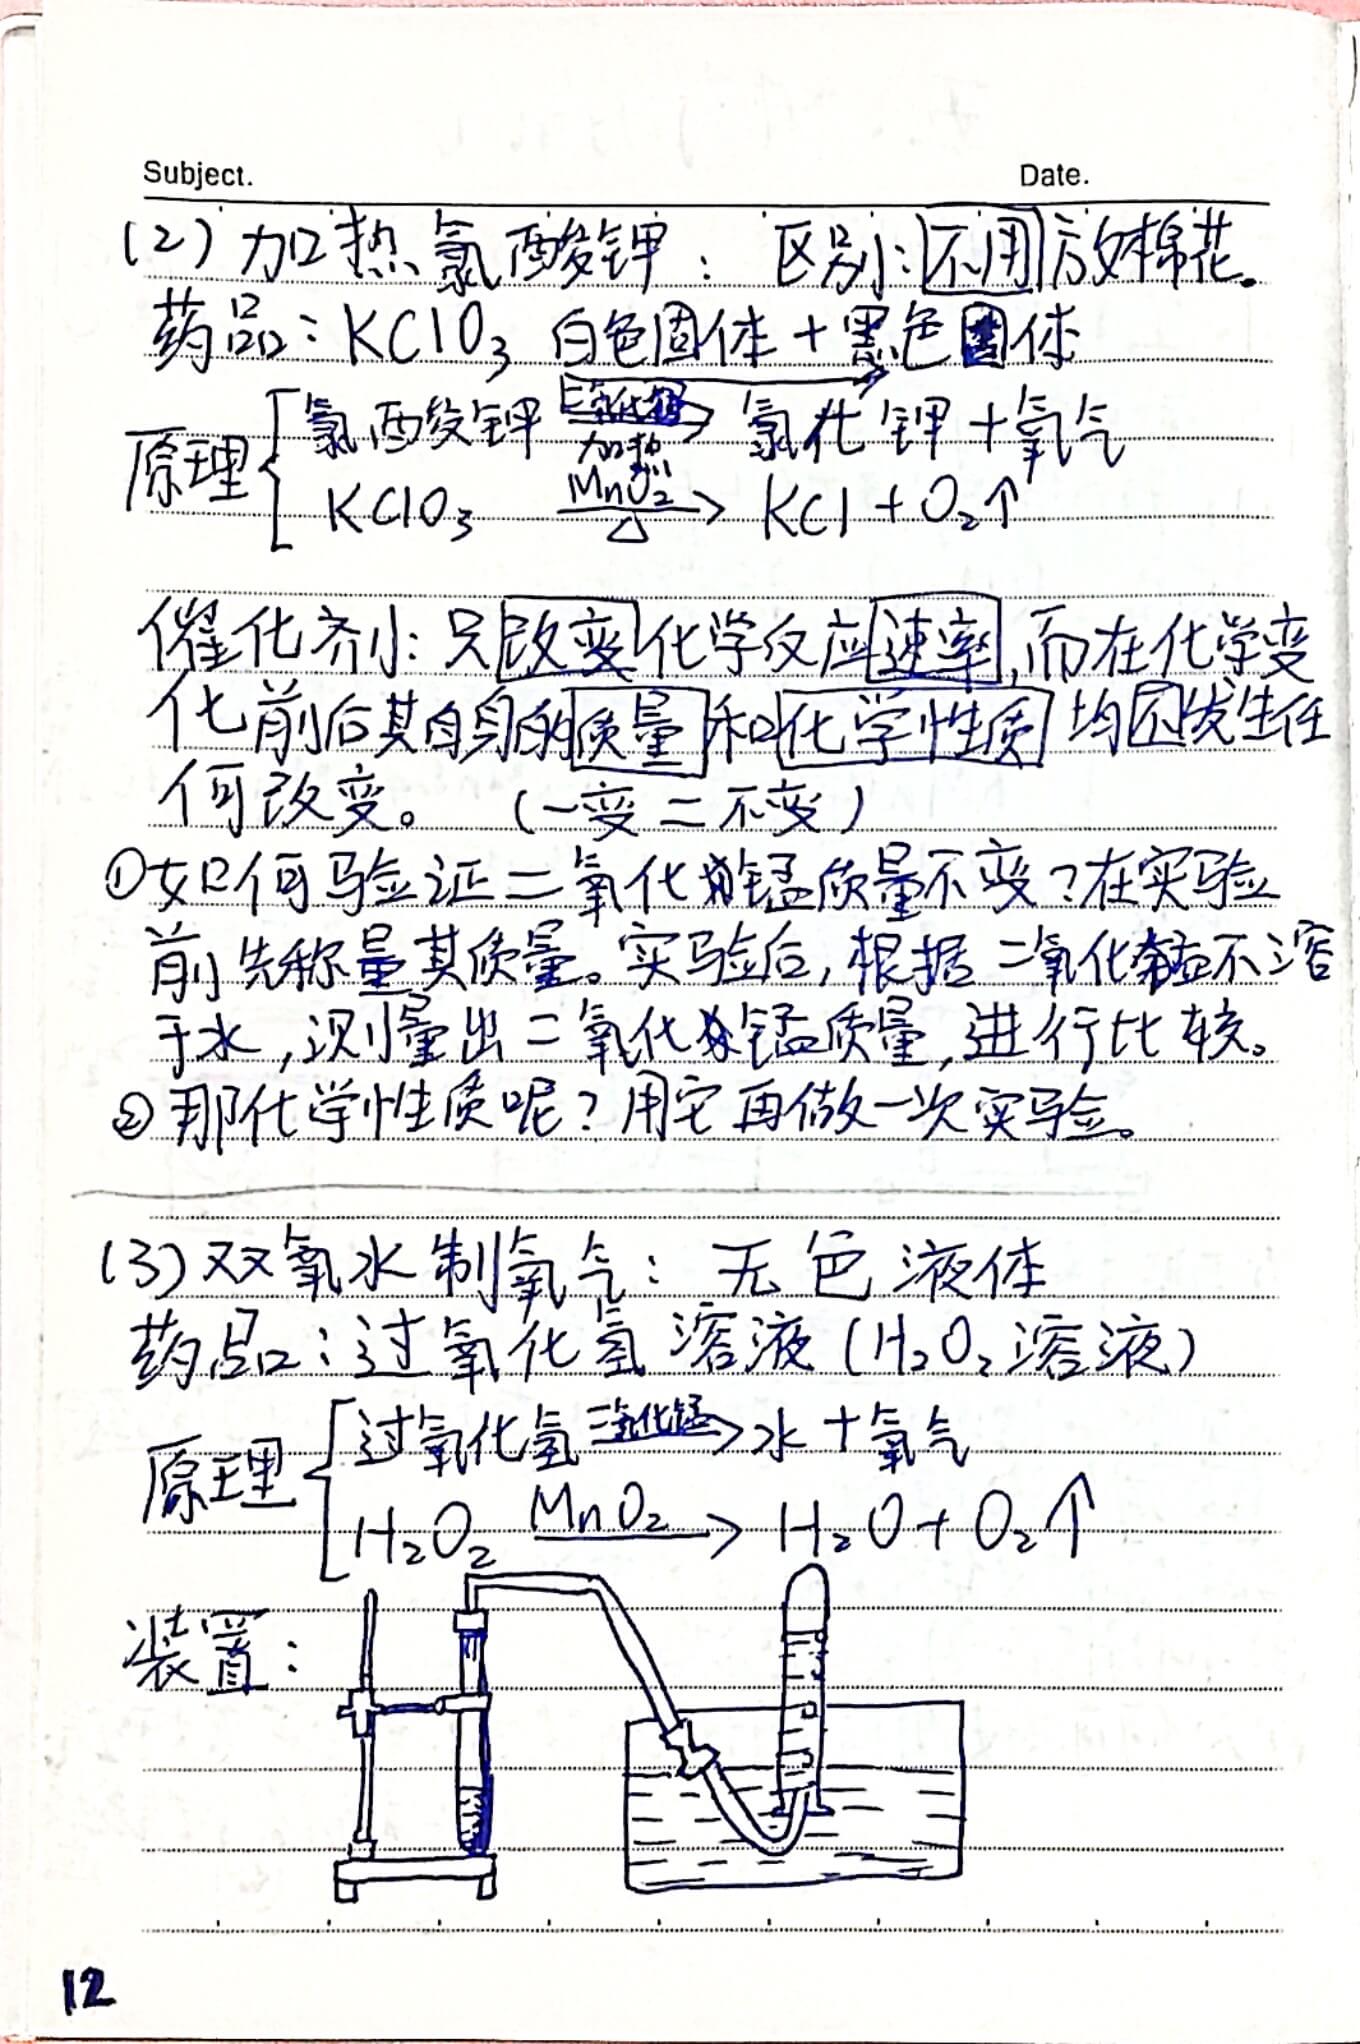 Subject. Date.
(2)加热氯酸钾: 区别:不用放棉花.
药品:KClO₃ 白色固体+黑色固体
二氧化锰
氯酸钾 → 氯化钾+氧气
加热
原理
MnO₂
KClO₃ → KCl+O₂↑
△
催化剂:只改变化学反应速率,而在化学变
化前后其自身的质量和化学性质均不发生任
何改变。(一变二不变)
①如何验证二氧化锰质量不变?在实验
前先称量其质量。实验后,根据二氧化锰不溶
于水,测量出二氧化锰质量,进行比较。
②那化学性质呢?用它再做一次实验。
(3)双氧水制氧气: 无色液体
药品:过氧化氢溶液(H₂O₂溶液)
过氧化氢 二氧化锰→ 水+氧气
原理
MnO₂
H₂O₂ → H₂O+O₂↑
装置:
12